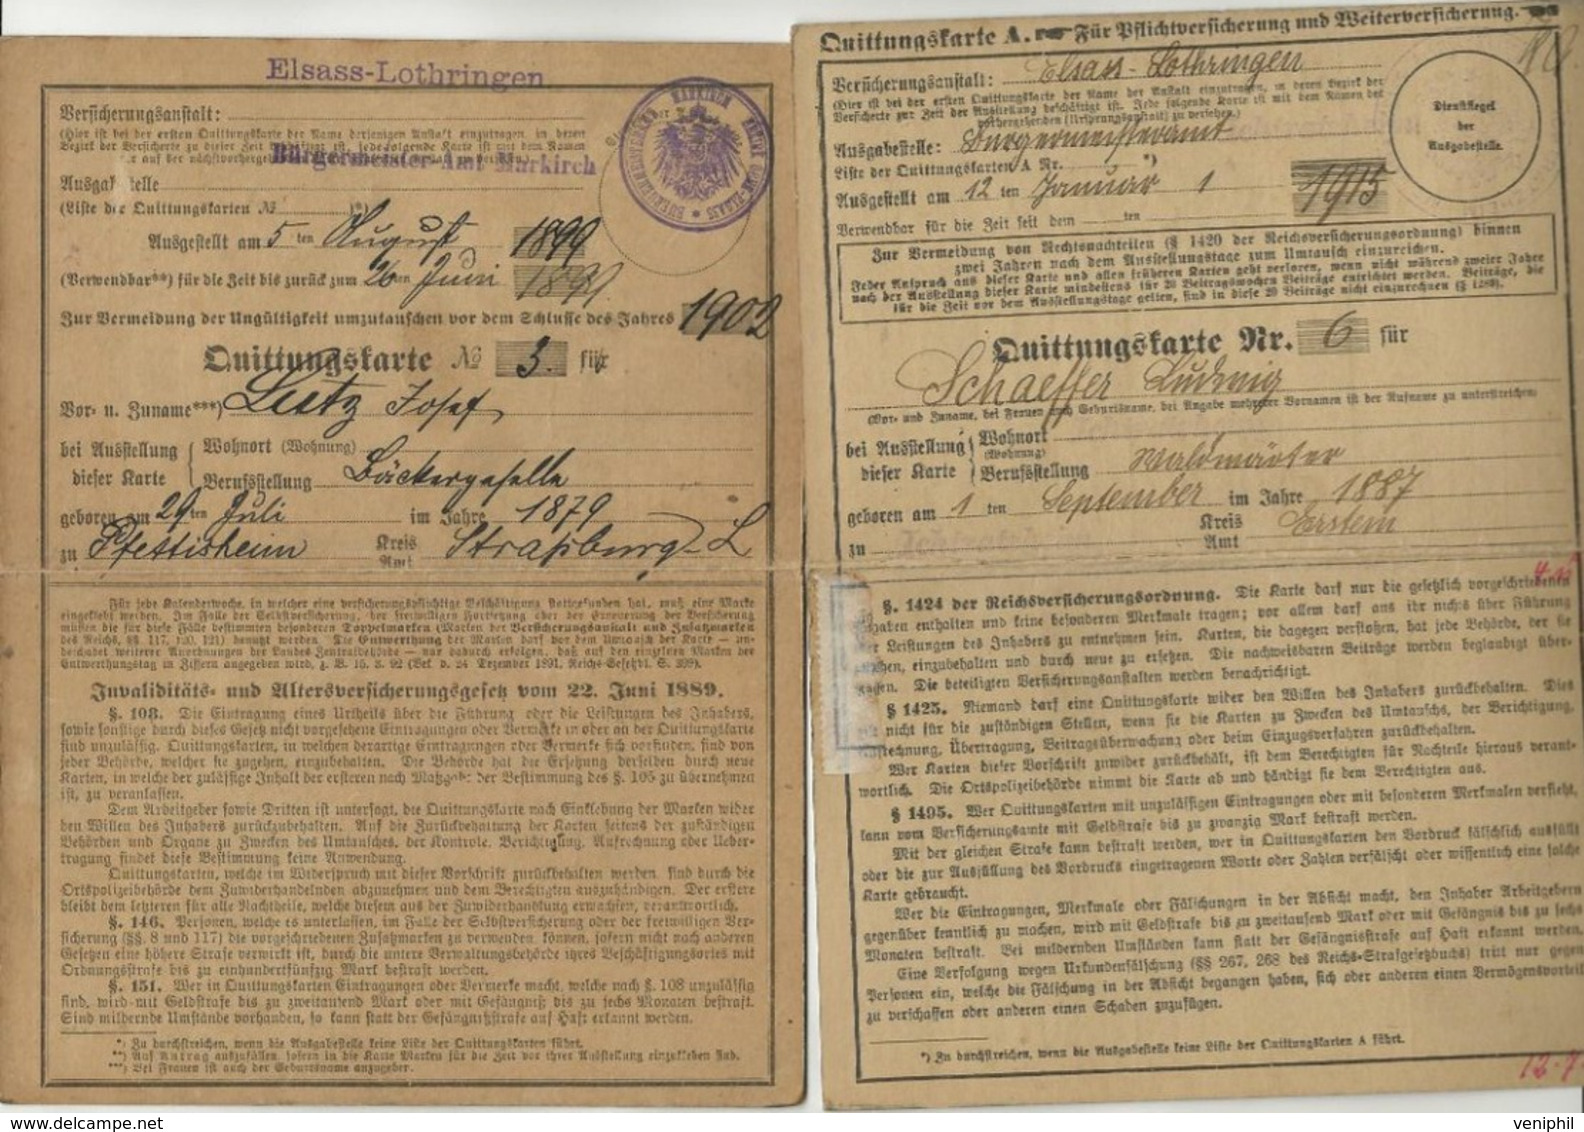 Elsass-Lothringen
Versicherungsanstalt:
(Hier ist bei der ersten Quittungskarte der Name derjenigen Anstalt einzutragen, in deren
Bezirk der Versicherte zu dieser Zeit beschäftigt ist. Jede folgende Karte ist mit dem Namen
der auf der nächstvorhergehenden
Bürgermeister-Amt Markirch
Ausgabestelle
(Liste der Quittungskarten №        )*)
Ausgestellt am 5ten August 1899
(Verwendbar**) für die Zeit bis zurück zum 26ten Juni 1899.
Zur Vermeidung der Ungültigkeit umzutauschen vor dem Schlusse des Jahres 1902
Quittungskarte № 3. für
Vor- u. Zuname***) Lutz Josef
bei Ausstellung Wohnort (Wohnung)
dieser Karte Berufsstellung Bäckergeselle
geboren am 29ten Juli im Jahre 1879
zu Pfettisheim Kreis Straßburg-L
Amt
Für jede Kalenderwoche, in welcher eine versicherungspflichtige Beschäftigung stattgefunden hat, muß eine Marke
eingeklebt werden. Im Falle der Selbstversicherung, der freiwilligen Fortsetzung oder der Erneuerung der Versicherung
müssen die für diese Fälle bestimmten besonderen Doppelmarken (Marken der Versicherungsanstalt und Zusatzmarken
des Reichs, §§. 117, 120, 121) benutzt werden. Die Entwerthung der Marken darf vor dem Umtausch der Karte – unbeschadet
weiterer Anordnungen der Landes-Zentralbehörde – nur dadurch erfolgen, daß auf den einzelnen Marken der
Entwerthungstag in Ziffern angegeben wird, z. B. 15. 3. 92 (Bek. v. 24. Dezember 1891, Reichs-Gesetzbl. S. 399).
Invaliditäts- und Altersversicherungsgesetz vom 22. Juni 1889.
§. 108. Die Eintragung eines Urtheils über die Führung oder die Leistungen des Inhabers,
sowie sonstige durch dieses Gesetz nicht vorgesehene Eintragungen oder Vermerke in oder an der Quittungskarte
sind unzulässig. Quittungskarten, in welchen derartige Eintragungen oder Vermerke sich vorfinden, sind von
jeder Behörde, welcher sie zugehen, einzubehalten. Die Behörde hat die Ersetzung derselben durch neue
Karten, in welche der zulässige Inhalt der ersteren nach Maßgabe der Bestimmung des §. 105 zu übernehmen
ist, zu veranlassen.
Dem Arbeitgeber sowie Dritten ist untersagt, die Quittungskarte nach Einklebung der Marken wider
den Willen des Inhabers zurückzubehalten. Auf die Zurückbehaltung der Karten seitens der zuständigen
Behörden und Organe zu Zwecken des Umtausches, der Kontrole, Berichtigung, Aufrechnung oder Uebertragung
findet diese Bestimmung keine Anwendung.
Quittungskarten, welche im Widerspruch mit dieser Vorschrift zurückbehalten werden, sind durch die
Ortspolizeibehörde dem Zuwiderhandelnden abzunehmen und dem Berechtigten auszuhändigen. Der erstere
bleibt dem letzteren für alle Nachtheile, welche diesem aus der Zuwiderhandlung erwachsen, verantwortlich.
§. 146. Personen, welche es unterlassen, im Falle der Selbstversicherung oder der freiwilligen Versicherung
(§§. 8 und 117) die vorgeschriebenen Zusatzmarken zu verwenden, können, sofern nicht nach anderen
Gesetzen eine höhere Strafe verwirkt ist, durch die untere Verwaltungsbehörde ihres Beschäftigungsortes mit
Ordnungsstrafe bis zu einhundertfünfzig Mark bestraft werden.
§. 151. Wer in Quittungskarten Eintragungen oder Vermerke macht, welche nach §. 108 unzulässig
sind, wird mit Geldstrafe bis zu zweitausend Mark oder mit Gefängniß bis zu sechs Monaten bestraft.
Sind mildernde Umstände vorhanden, so kann statt der Gefängnißstrafe auf Haft erkannt werden.
*) Zu durchstreichen, wenn die Ausgabestelle keine Liste der Quittungskarten führt.
**) Auf Antrag auszufüllen, sofern in die Karte Marken für die Zeit vor ihrer Ausstellung einzukleben sind.
***) Bei Frauen ist auch der Geburtsname anzugeben.
Quittungskarte A. Für Pflichtversicherung und Weiterversicherung.
Versicherungsanstalt: Elsass-Lothringen
(Hier ist bei der ersten Quittungskarte der Name der Anstalt einzutragen, in deren Bezirk der
Versicherte zur Zeit der Ausstellung beschäftigt ist. Jede folgende Karte ist mit dem Namen der
vorhergehenden (Ursprungsanstalt) zu versehen.)
Ausgabestelle: Bürgermeisteramt
Liste der Quittungskarten A Nr.        *)
Ausgestellt am 12 ten Januar 1 1915
Verwendbar für die Zeit seit dem ten
Dienstsiegel
der
Ausgabestelle.
Zur Vermeidung von Rechtsnachteilen (§ 1420 der Reichsversicherungsordnung) binnen
zwei Jahren nach dem Ausstellungstage zum Umtausch einzureichen.
Jeder Anspruch aus dieser Karte und allen früheren Karten geht verloren, wenn nicht während zweier Jahre
nach der Ausstellung dieser Karte mindestens für 20 Beitragswochen Beiträge entrichtet werden. Beiträge, die
für die Zeit vor dem Ausstellungstage gelten, sind in diese 20 Beiträge nicht einzurechnen (§ 1280).
Quittungskarte Nr. 6 für
Schaeffer Ludwig
(Vor- und Zuname, bei Frauen auch Geburtsname, bei Angabe mehrerer Vornamen ist der Rufname zu unterstreichen)
bei Ausstellung Wohnort
(Wohnung)
dieser Karte Berufsstellung Waldwärter
geboren am 1 ten September im Jahre 1887
zu Kreis Erstein
Amt
§. 1424 der Reichsversicherungsordnung. Die Karte darf nur die gesetzlich vorgeschriebenen
Angaben enthalten und keine besonderen Merkmale tragen; vor allem darf aus ihr nichts über Führung
oder Leistungen des Inhabers zu entnehmen sein. Karten, die dagegen verstoßen, hat jede Behörde, der sie
zugehen, einzubehalten und durch neue zu ersetzen. Die nachweisbaren Beiträge werden beglaubigt übertragen.
Die beteiligten Versicherungsanstalten werden benachrichtigt.
§ 1425. Niemand darf eine Quittungskarte wider den Willen des Inhabers zurückbehalten. Dies
gilt nicht für die zuständigen Stellen, wenn sie die Karten zu Zwecken des Umtauschs, der Berichtigung,
Aufrechnung, Übertragung, Beitragsüberwachung oder beim Einzugsverfahren zurückbehalten.
Wer Karten dieser Vorschrift zuwider zurückbehält, ist dem Berechtigten für Nachteile hieraus verantwortlich.
Die Ortspolizeibehörde nimmt die Karte ab und händigt sie dem Berechtigten aus.
§ 1495. Wer Quittungskarten mit unzulässigen Eintragungen oder mit besonderen Merkmalen versieht,
kann vom Versicherungsamte mit Geldstrafe bis zu zwanzig Mark bestraft werden.
Mit der gleichen Strafe kann bestraft werden, wer in Quittungskarten den Vordruck fälschlich ausfüllt
oder die zur Ausfüllung des Vordrucks eingetragenen Worte oder Zahlen verfälscht oder wissentlich eine solche
Karte gebraucht.
Wer die Eintragungen, Merkmale oder Fälschungen in der Absicht macht, den Inhaber Arbeitgebern
gegenüber kenntlich zu machen, wird mit Geldstrafe bis zu zweitausend Mark oder mit Gefängnis bis zu sechs
Monaten bestraft. Bei mildernden Umständen kann statt der Gefängnisstrafe auf Haft erkannt werden.
Eine Verfolgung wegen Urkundenfälschung (§§ 267, 268 des Reichs-Strafgesetzbuchs) tritt nur gegen
Personen ein, welche die Fälschung in der Absicht begangen haben, sich oder anderen einen Vermögensvorteil
zu verschaffen oder anderen einen Schaden zuzufügen.
*) Zu durchstreichen, wenn die Ausgabestelle keine Liste der Quittungskarten A führt.
veniphil